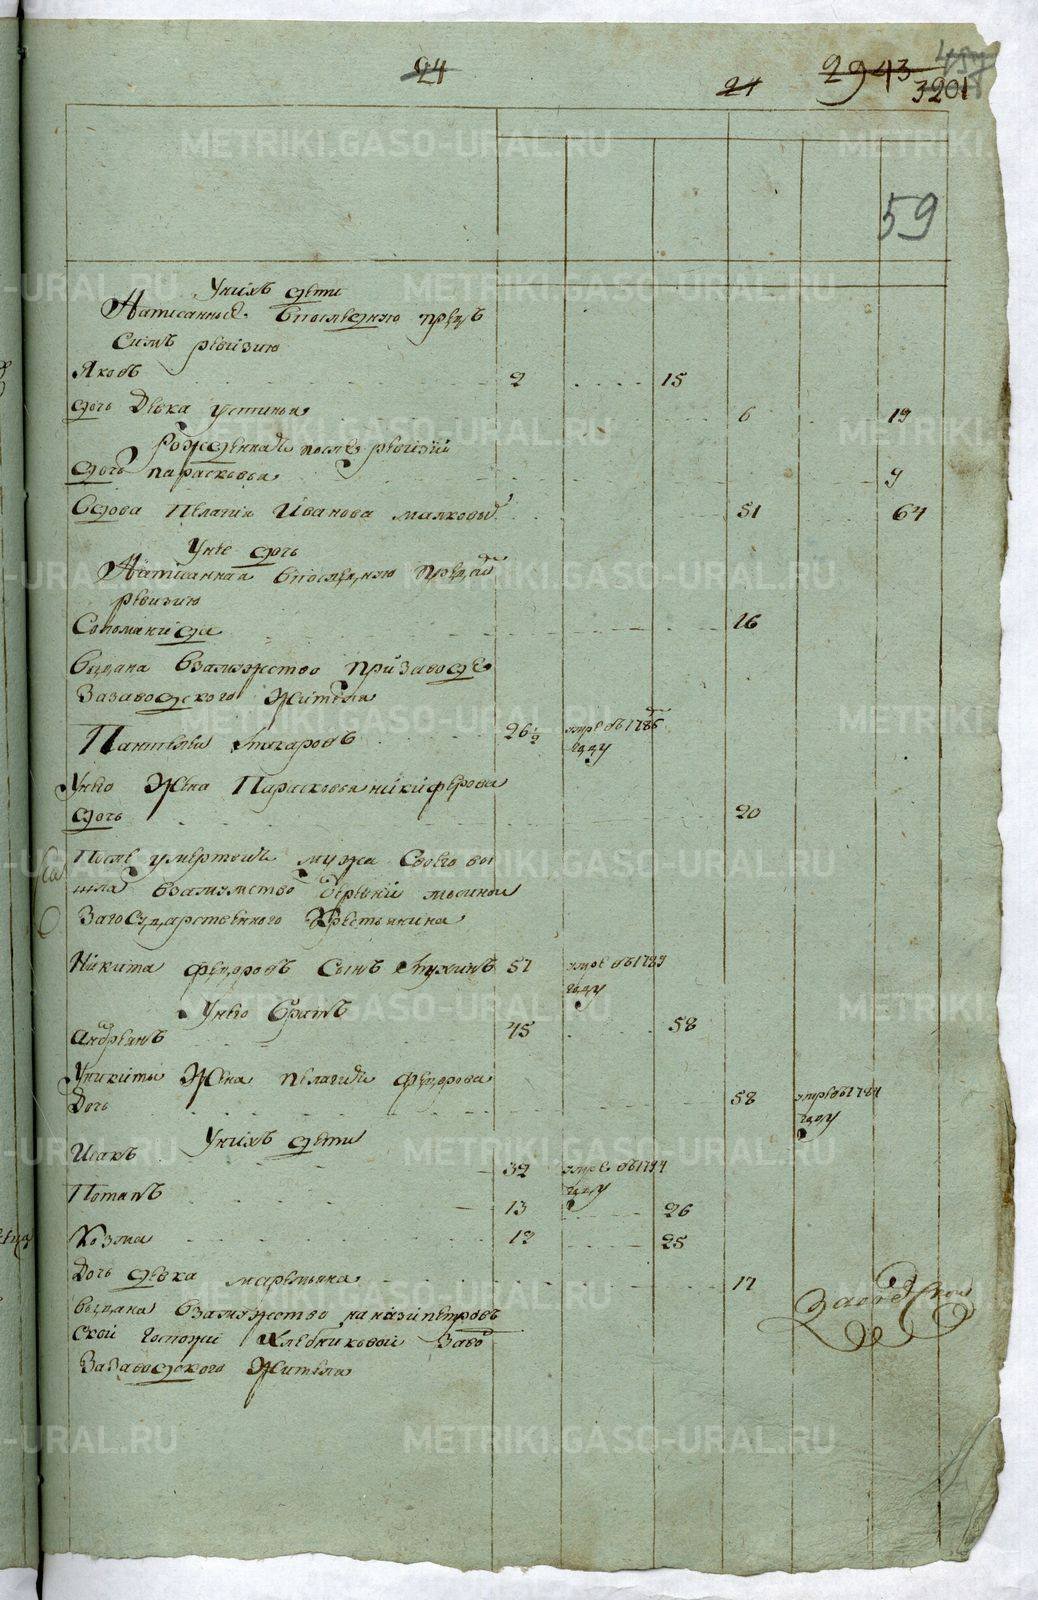 24
24
2943
457
3201
59
Унихъ дети
Написанные впоследнюю предъ
симъ ревизию
Яковъ 2 15
дочь Девка устинья 6 19
Рожденная после ревизии
дочь парасковья 9
Вдова Пелагия Иванова малковы 51 64
Унее дочь
Написанная впоследнюю пред
ревизию
Соломанида 16
выдана взамужство призаводе
Зазаводского Жителя
Пантелей Макаровъ 26½ умре въ1786
году
Унево Жена Парасковья никифорова
дочь 20
После умертвия мужа своего вы
шла взамужство деревни
Загосударственного Крестьянина
Никита федоровъ Сынъ 57 умре въ1789
году
Унево братъ
андреянъ 45 58
Уникиты Жена пелагия федорова
Дочь 58 умре въ1784
году
Унихъ дети
Исакъ 32 умре въ1794
году
Потапъ 13 26
Козма 12 25
Дочь девка маремьяна 17
выдана взамужство наназепетров
ской госпожи Заво
Зазаводского Жителя
METRIKI.GASO-URAL.RU